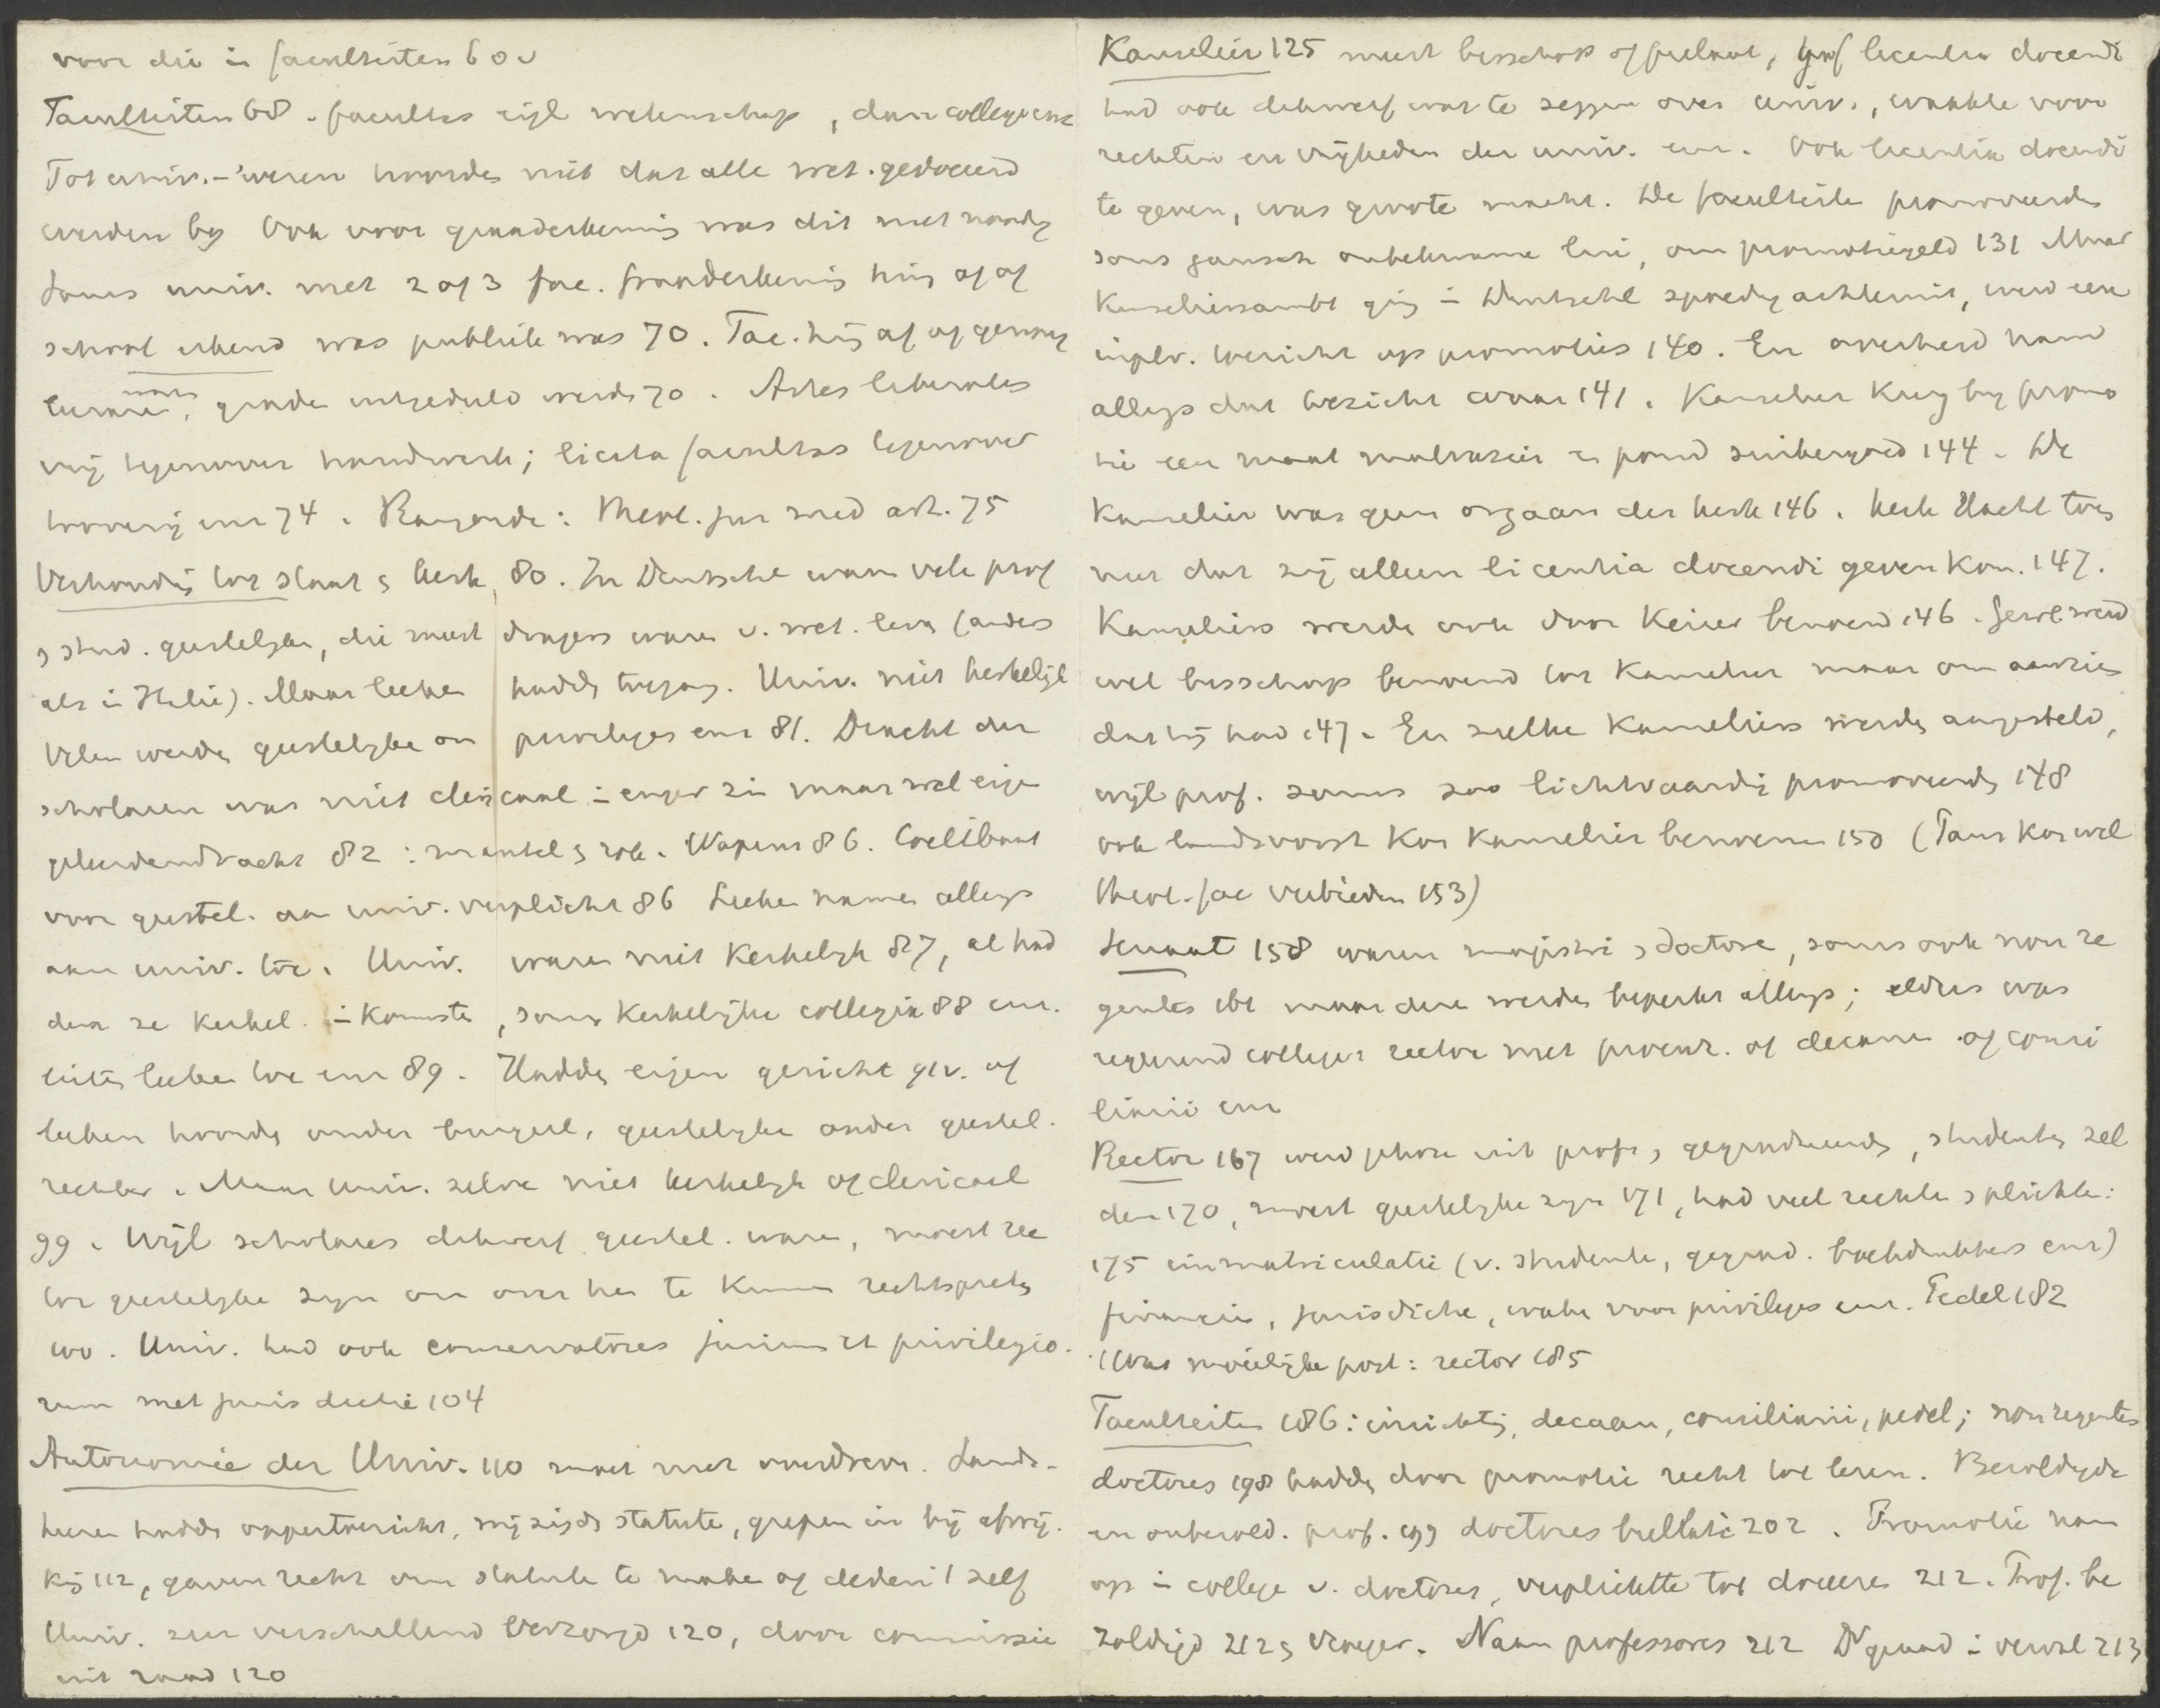 voor die in faculteiten 60v
Faculteiten 68. facultas eigl wetenschap, dan college enz
Tot univ.-wezen hoorde niet dat alle wet. gedoceerd
werden bij Ook voor pauselike was dit niet noodig
Soms univ. met 2 of 3 fac. hing af of
school erkend was publiek was 70. Fac. hing af of genoeg
waren, graden uitgedeeld werden 70. Artes liberales
vrij tegenover handwerk; licita facultas tegenover
toovery enz 74. Rangorde: theol. jur med art. 75
Verhouding tot staat en kerk 80. In Duitschl waren vele prof
en stud. geestelijken, die meest dragers waren v. wet. leven (anders
als in Italië). Maar leeken hadden toegang. Univ. niet kerkelijk
Velen werden geestelijke om privileges enz 81. Dracht der
scholaren was niet clericaal in enger zin maar wel eigen
geleerdendracht 82: mantel en rok. Wapens 86. Coelibaat
voor geestel. aan univ. verplicht 86 Leeken namen allengs
aan univ. toe. Univ. waren niet kerkelijk 87, al had
den ze kerkel. inkomsten, soms kerkelijke collegia 88 enz.
lieten leeken toe enz 89. Hadden eigen gericht of
leeken hoorden onder burgerl, geestelijke onder geestel.
rechter. Maar univ. zelve niet kerkelijk of clericael
99. Wijl scholares dikwerf geestel. waren, moest rec
tor geestelijke zijn om over hen te kunnen rechtspreken
100. Univ. had ook conservatores jurium et privilegio-
rum met jurisdictie 104
Autonomie der Univ. 110 moet niet overdreven. Lands-
heeren hadden oppertoezicht, wijzigden statuten, grepen in bij afwij-
king 112, gaven recht om statuten te maken of deden 't zelf
Univ. zeer verschillend verzorgd 120, door commissie
uit raad 120
Kanselier 125 meest bisschop of prelaat, gaf licentia docendi
had ook dikwerf wat te zeggen over univ., waakte voor
rechten en vrijheden der univ. enz. Ook licentia docendi
te geven, was groote macht. De faculteiten promoveerden
soms gansch onbekwame lui, om promotiegeld 131 Maar
Kanseliersambt ging in Duitschl spoedig achteruit, werd een
toezicht op promoties 140. En overheid nam
allengs dat toezicht waar 141. Kanselier kreeg bij promo
tie een maat malvazier en pond suikergoed 144. De
Kanselier was geen orgaan der kerk 146. Kerk dacht toen
niet dat zij alleen licentia docendi geven kon. 147.
Kanseliers werden ook door Keizer benoemd 146. Gewl werd
wel bisschop benoemd tot Kanselier maar om aanzien
dat hij had 147. En zulke Kanseliers werden aangesteld,
wijl prof. soms zoo lichtvaardig promoveerden 148
ook landsvorst kon Kanselier benoemen 150 (Paus kon wel
theol. fac verbieden 153)
Senaat 158 waren magistri en doctores, soms ook non re
gentes ibi maar deze werden beperkt allengs; elders was
regeerend college: rector met procur. of decanen of consi
liarii enz
Rector 167 werd gekozen uit prof. en gegradueerden, studenten zel
den 170, moest geestelijke zijn 171, had veel rechten en plichten:
175 immatriculatie (v. studenten, gegrad. boekdrukkers enz)
financiën, jurisdictie, waken voor privileges enz. Pedel 182
(Was moeielijke post: rector 185
Faculteiten 186: inrichting, decaan, consiliarii, pedel; non regentes
doctores 198 hadden door promotie recht tot leren. Bezoldigde
en onbezold. prof. 199 doctores bullati 202. Promotie nam
op in college v. doctores, verplichtte tot doceeren 212. Prof. be
zoldigd 212 en vroeger. Naam professores 212 Dr graad in verval 213